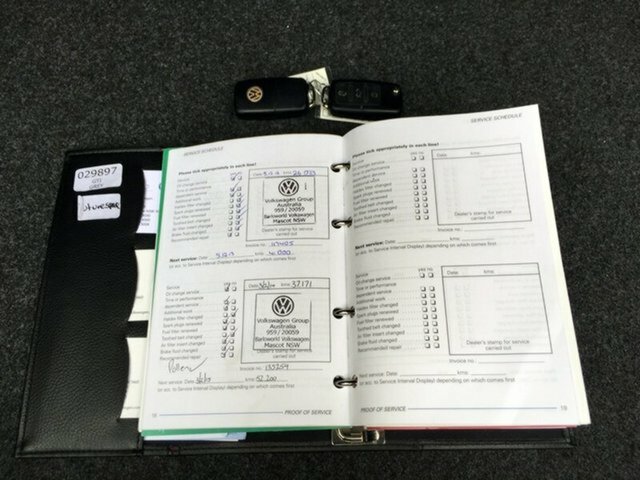 029897
GTI
GREY
SERVICE SCHEDULE
Please tick appropriately in each line!
Service yes no
Oil change service
Time or performance
dependent service
Additional work
Haldex filter changed
Spark plugs renewed
Fuel filter renewed
Toothed belt changed
Air filter insert changed
Brake fluid changed
Recommended repair
Date kms
Volkswagen Group
Australia
959 / 20059
Barloworld Volkswagen
Mascot NSW
Dealer's stamp for service
carried out
Invoice no. 117405
Next service: Date kms
or acc. to Service Interval Display) depending on which comes first
Service yes no
Oil change service
Time or performance
dependent service
Additional work
Haldex filter changed
Spark plugs renewed
Fuel filter renewed
Toothed belt changed
Air filter insert changed
Brake fluid changed
Recommended repair
Pollen
Date kms 37171
Volkswagen Group
Australia
959 / 20059
Barloworld Volkswagen
Mascot NSW
Dealer's stamp for service
carried out
Invoice no. 133259
Next service: Date kms 52,200
or acc. to Service Interval Display) depending on which comes first
18 PROOF OF SERVICE
SERVICE SCHEDULE
Please tick appropriately in each line!
Service yes no
Oil change service
Time or performance
dependent service
Additional work
Haldex filter changed
Spark plugs renewed
Fuel filter renewed
Toothed belt changed
Air filter insert changed
Brake fluid changed
Recommended repair
Date kms
Dealer's stamp for service
carried out
Invoice no.
Next service: Date kms
or acc. to Service Interval Display) depending on which comes first
Service yes no
Oil change service
Time or performance
dependent service
Additional work
Haldex filter changed
Spark plugs renewed
Fuel filter renewed
Toothed belt changed
Air filter insert changed
Brake fluid changed
Recommended repair
Date kms
Dealer's stamp for service
carried out
Invoice no.
Next service: Date kms
or acc. to Service Interval Display) depending on which comes first
PROOF OF SERVICE 19